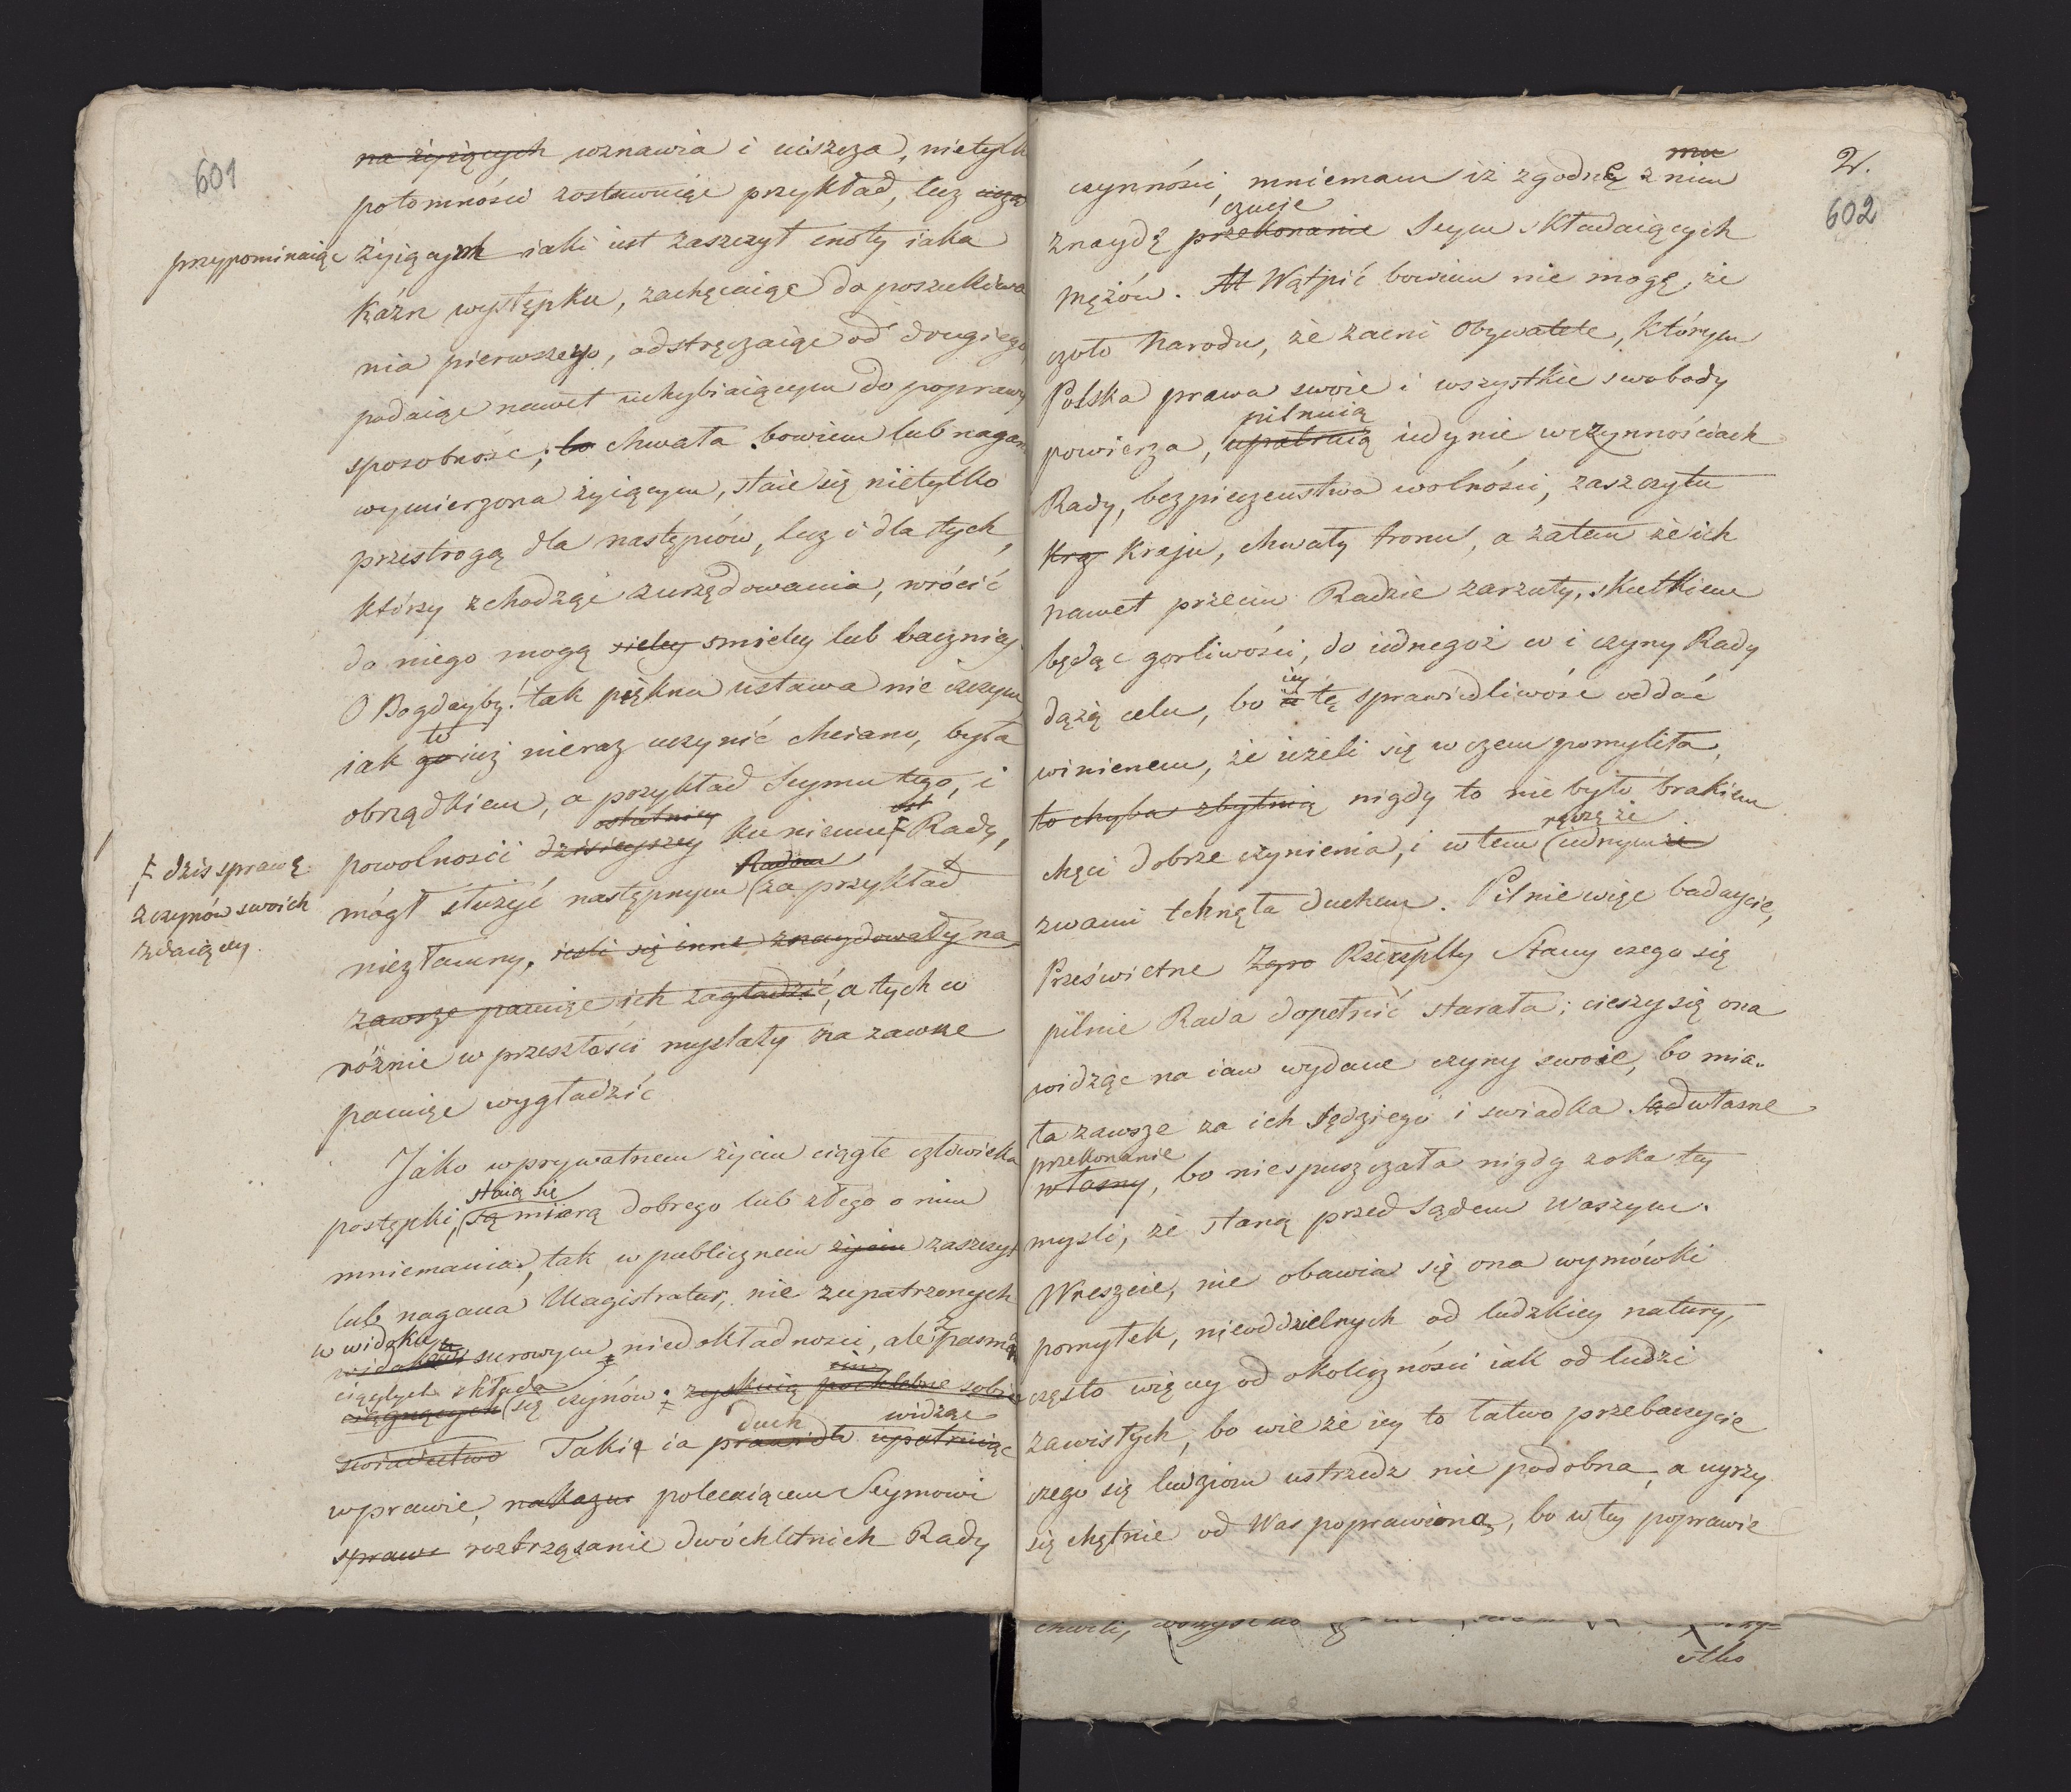 601
na żyiących wznawia i uiszcza, nietylk
potomności zostawuiąc przykład, lecz ucząc
przypominaiąc żyiącym iaki iest zaszczyt cnoty iaka
Kaźń występku, zachęcaiąc do poszukiwa
nia pierwszego, odstręczaiąc od drugiego
podaiąc nawet uchybiaiącym do poprawy
sposobność; bo chwała bowiem lub nagan
wymierzona żyiącym, staie się nietylko
przestrogą dla następców, lecz i dla tych,
którzy schodząc z urzędowania, wrócić
do niego mogą sieley smieley lub baczniey.
O Bogdayby! tak piękna ustawa nie czczym
to
iak go iuż nieraz uczynić chciano, była
obrządkiem, a przykład Seymu tego, i
ostatniey
powolności dzisieyszey ku niemu ŧ Rady,
ŧ dziś sprawę
z czynów swoich
zdaiącey.
Radom
mógł służyć następnym za przykład
niezłomny, ieśli się inne znaydowały na
zawsze pamięć ich zagładzić, a tych co
różnie w przeszłości myslały na zawsze
pamięć wygładzić
Jako w prywatnem życiu ciągłe człowieka
staią się
postępki, są miarą dobrego lub złego o nim
mniemania, tak w publicznem życiu zaszczyt
lub nagana Magistratur, nie z upatrzonych
w widoku
surowym niedokładności, ale z pasma
ciągłych składa
ciągnących się czynów: zyskuią pochlebne sobie
duch widząc
swiadectwo Taki ia prawidło upatruiąc
w prawie, nakazu polecaiącem Seymowi
sprawe roztrząsanie dwóchletnich Rady
2.
602
czynności, mniemam iż zgodne z niem
czucie
znaydę przekonanie Seym składaiących
mężów. Wątpić bowiem nie mogę, że
czoło Narodu, że zacni Obywatele, którym
Polska prawa swoie i wszystkie swobody
pilnuią
powierza, upatruią iedynie w czynnościach
Rady, bezpieczeństwa wolności, zaszczytu
Kra Kraju, chwały tronu, a zatem że ich
nawet przeciw Radzie zarzuty, skutkiem
będąc gorliwości, do iednegoż co i czyny Rady
iey
dążą celu, bo tę sprawiedliwość oddać
winienem, że ieżeli się w czem pomyliła,
to chyba zbytnią nigdy to nie było brakiem
ręczę że
chęci dobrze czynienia, i w tem iednym że
z wami tchnęła duchem. Pilnie więc badaycie,
Prześwietne Zgro Rzeczplty Stany czego się
pilnie Rada dopełnić starała; cieszy się ona
widząc na iaw wydane czyny swoie, bo mia..
ła zawsze za ich sędziego i swiadka sąd własne
przekonanie
własny, bo nie spuszczała nigdy z oka tey
mysli, że staną przed Sądem Waszym.
Wreszcie, nie obawia się ona wymówki
pomyłek, nieoddzielnych od ludzkiey natury,
często więcey od okoliczności iak od ludzi
zawisłych, bo wie że iey to łatwo przebaczycie
czego się ludziom ustrzedz nie podobna, a uyrzy
się chętnie od Was poprawioną, bo w tey poprawie